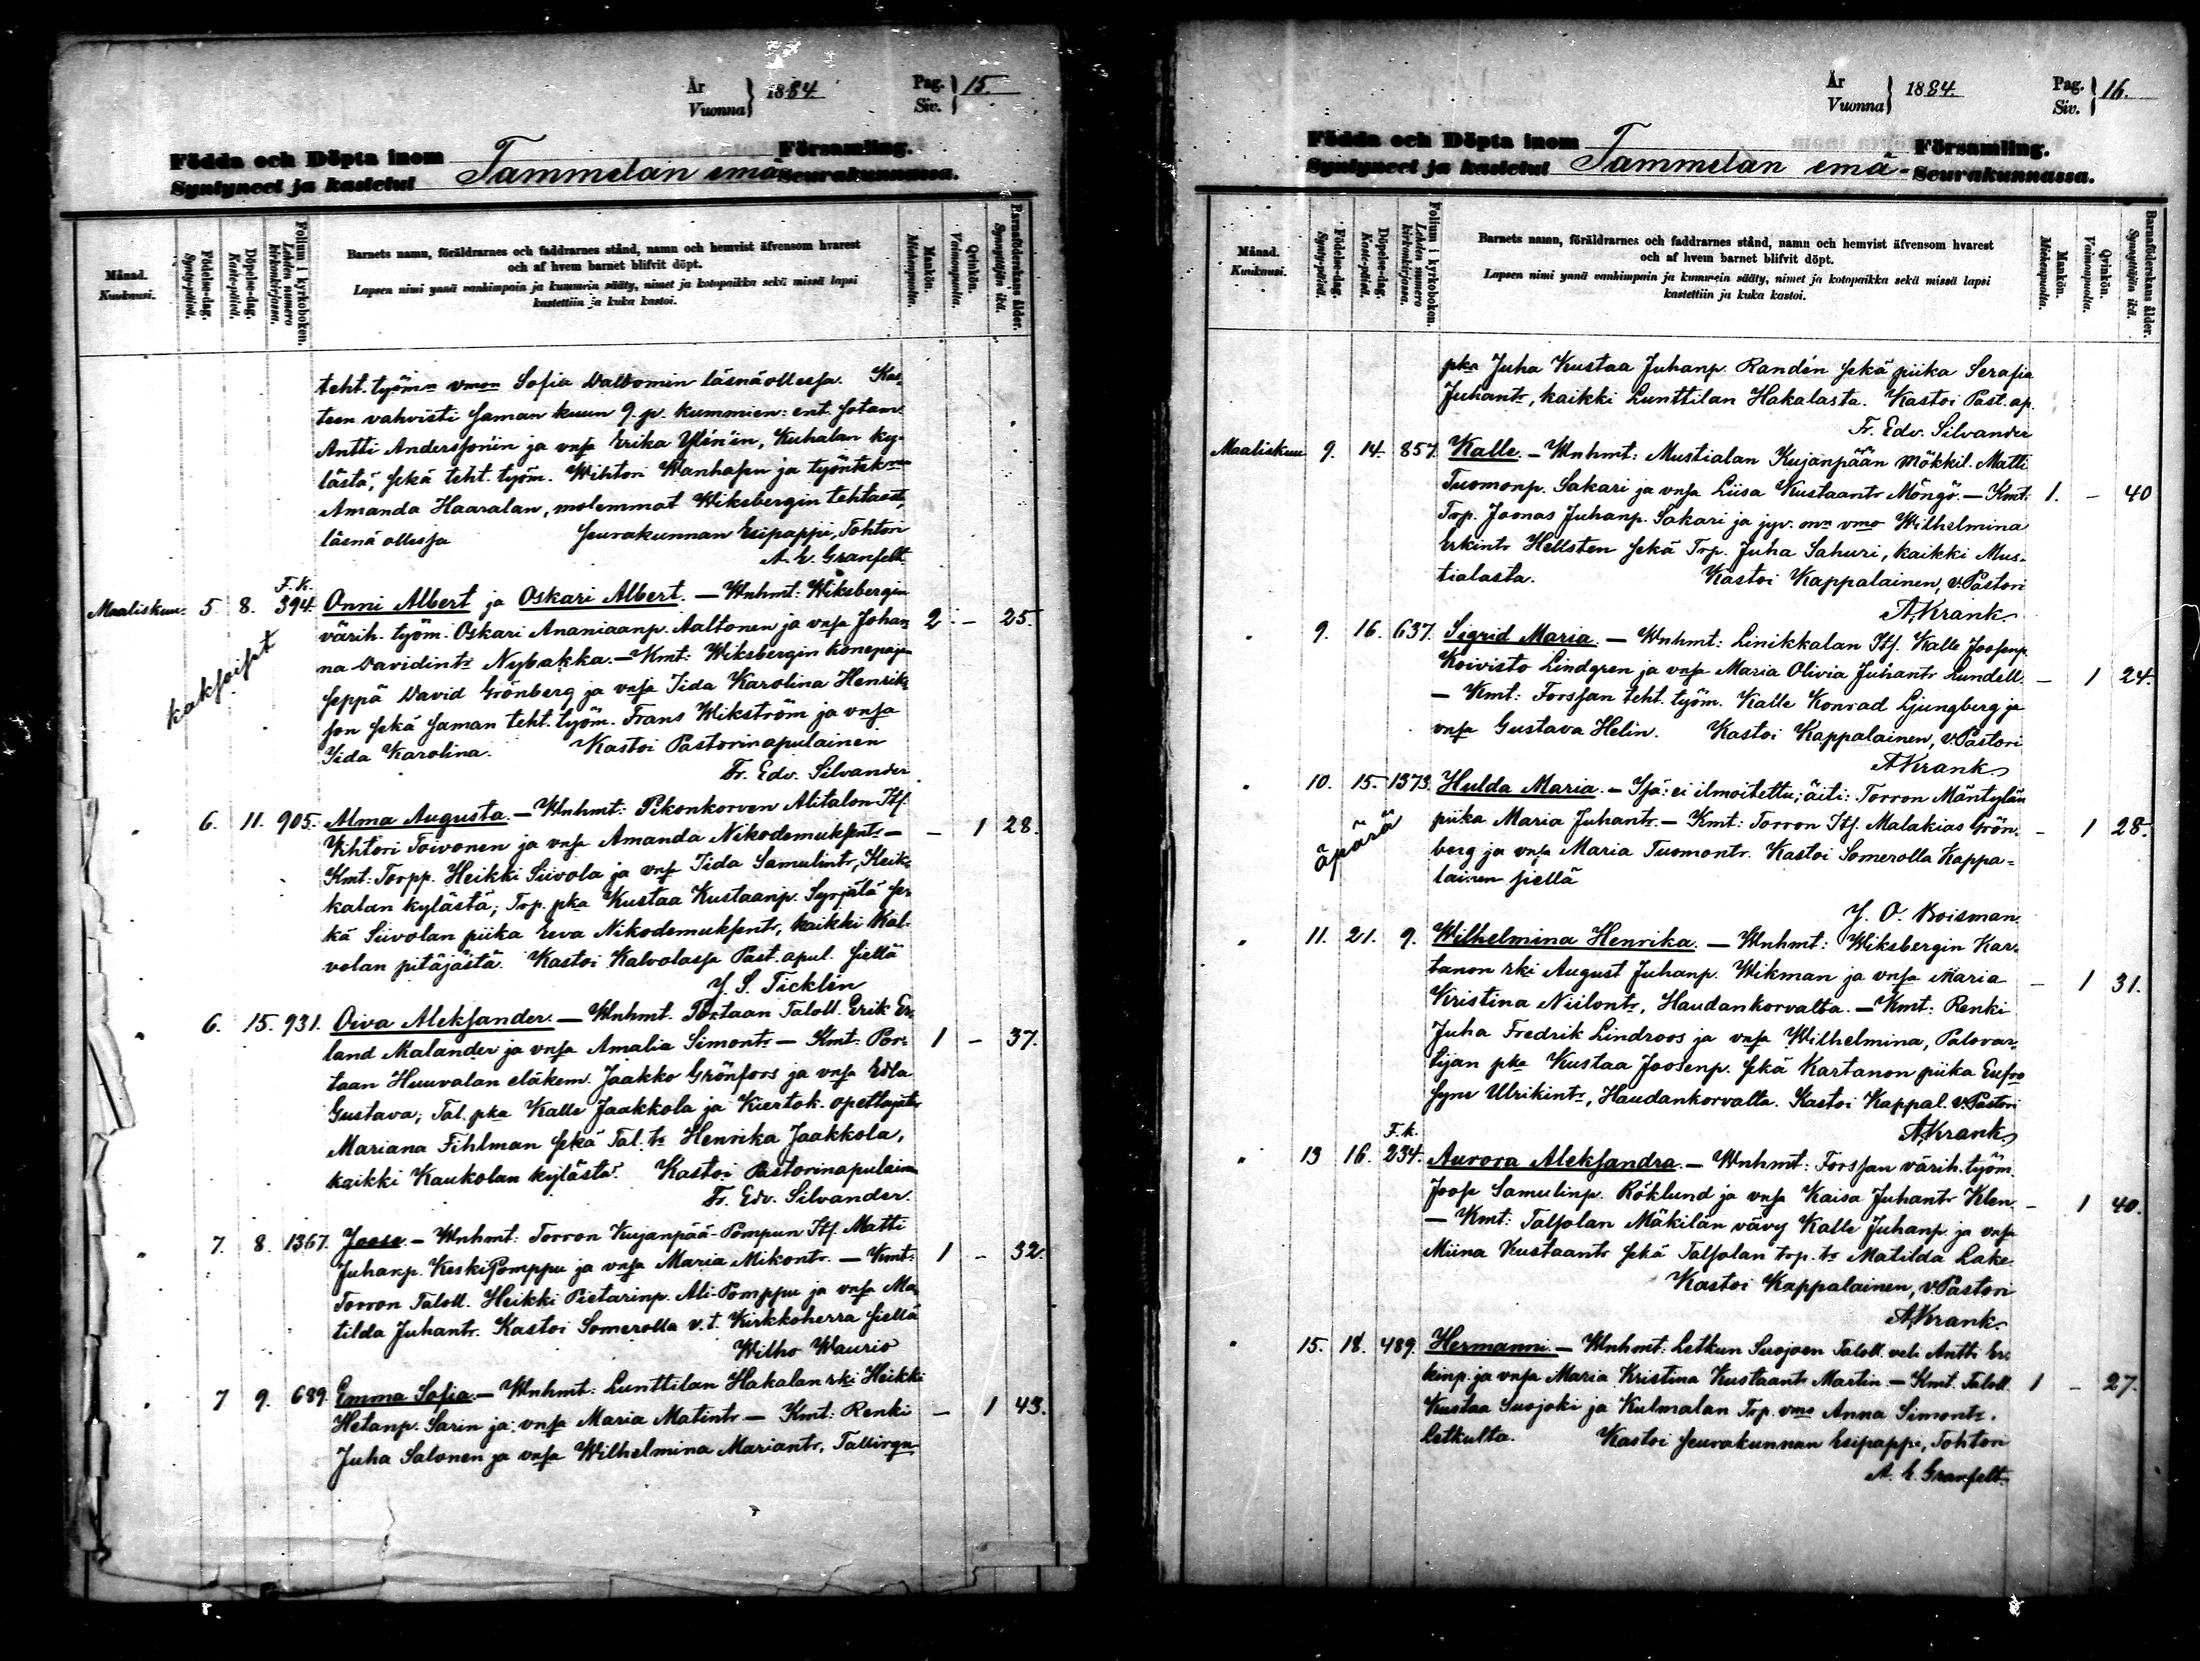 År
Vuonna } 1884.
Pag.
Siv. } 15.
Födda och Döpta inom
Syntyneet ja kastetut Tammelan emä Församling.
Seurakunnassa.
Månad.
Kuukausi.
Födelse-dag.
Synty-päivä.
Döpelse-dag.
Kaste-päivä.
Folium i kyrkoboken.
Lehden numero kirkonkirjassa.
Barnets namn, föräldrarnes och faddrarnes stånd, namn och hemvist äfvensom hvarest
och af hvem barnet blifvit döpt.
Lapsen nimi ynnä vanhimpain ja kummein sääty, nimet ja kotopaikka sekä missä lapsi
kastettiin ja kuka kastoi.
Mankön.
Miehenpuolta.
Qvinkön.
Vaimonpuolta.
Barnaföderskans ålder.
Synnyttäjän ikä.
teht. työmn vmon Sofia Valdomin läsnäollessa. Kas-
teen vahvisti saman kuun 9. p. kummien: ent. sotam.
Antti Anderssonin ja vnsa Erika Ylénin, Kuhalan ky-
lästä, sekä teht. työm. Wihtori Wanhasen ja työntek
Amanda Haaralan, molemmat Wiksbergin tehtaasta,
läsnä ollessa Seurakunnan Esipappi, Tohtori
A. E. Granfelt.
F.k.
Maaliskuu. 5 8. 394. Onni Albert ja Oskari Albert. — Wnhmt: Wiksbergin
värih. työm. Oskari Ananiaanp. Aaltonen ja vnsa Johan- 2. — 25.
na Davidintr Nybakka. — Kmt: Wiksbergin konepajan
kaksoiset
seppä David Grönberg ja vnsa Iida Karolina Henriks-
son sekä saman teht. työm. Frans Wikström ja vnsa
Iida Karolina. Kastoi Pastorinapulainen
Fr. Edv. Silvander
" 6. 11. 905. Alma Augusta. — Wnhmt: Pikonkorven Alitalon Itf.
Wihtori Toivonen ja vnsa Amanda Nikodemuksentr — — 1 28.
Kmt: Torpp. Heikki Siivola ja vnsa Iida Samulintr, Keik-
kalan kylästä; Trp. pka Kustaa Kustaanp. Syrjälä se-
kä Siivolan piika Eeva Nikodemuksentr, kaikki Kal-
volan pitäjästä. Kastoi Kalvolassa Past. apul. siellä
Y. S. Ticklén
" 6. 15. 931. Oiva Aleksander. — Wnhmt. Portaan Taloll. Erik Er-
land Malander ja vnsa Amalia Simontr — Kmt: Por- 1 — 37.
taan Huuvalan eläkem. Jaakko Grönfors ja vnsa Edla
Gustava; Tal. pka Kalle Jaakkola ja Kiertok. opettajatar
Mariana Fihlman sekä Tal. tr Henrika Jaakkola,
kaikki Kaukolan kylästä. Kastoi Pastorinapulainen
Fr. Edv. Silvander.
" 7. 8. 1367. Joose. — Wnhmt: Torron Kujanpää-Pompun Itf. Matti
Juhanp. KeskiPomppu ja vnsa Maria Mikontr. — Kmt: 1 — 32.
Torron Taloll. Heikki Pietarinp. Ali-Pomppu ja vnsa Ma-
tilda Juhantr. Kastoi Somerolla v.t. Kirkkoherra siellä
Wilho Waurio
" 7 9. 689. Emma Sofia. — Wnhmt: Lunttilan Hakalan rki Heikki
Hetanp. Sarin ja vnsa Maria Matintr — Kmt: Renki — 1 43.
Juha Salonen ja vnsa Wilhelmina Mariantr, Tallirgn
År
Vuonna } 1884.
Pag.
Siv. } 16.
Födda och Döpta inom
Syntyneet ja kastetut Tammelan emä- Församling.
Seurakunnassa.
Månad.
Kuukausi.
Födelse-dag.
Synty-päivä.
Döpelse-dag.
Kaste-päivä.
Folium i kyrkoboken.
Lehden numero kirkonkirjassa.
Barnets namn, föräldrarnes och faddrarnes stånd, namn och hemvist äfvensom hvarest
och af hvem barnet blifvit döpt.
Lapsen nimi ynnä vanhimpain ja kummein sääty, nimet ja kotopaikka sekä missä lapsi
kastettiin ja kuka kastoi.
Mankön.
Miehenpuolta.
Qvinkön.
Vaimonpuolta.
Barnaföderskans ålder.
Synnyttäjän ikä.
pka Juha Kustaa Juhanp. Randén sekä piika Serafia
Juhantr, kaikki Lunttilan Hakalasta. Kastoi Past. ap.
Fr. Edv. Silvander
Maaliskuu 9. 14. 857. Kalle. — Wnhmt: Mustialan Kujanpään Mökkil. Matti
Tuomonp. Sakari ja vnsa Liisa Kustaantr Möngö. — Kmt: 1. — 40
Trp. Joonas Juhanp. Sakari ja jyv. mn vmo Wilhelmina
Erkintr Hellsten sekä Trp. Juha Sahuri, kaikki Mus-
tialasta. Kastoi Kappalainen, v. Pastori
A. Krank
" 9. 16. 637. Sigrid Maria. — Wnhmt: Linikkalan Itf. Kalle Joosenp.
Koivisto Lindgren ja vnsa Maria Olivia Juhantr Lundell. — 1 24.
— Kmt: Forssan teht. työm. Kalle Konrad Ljungberg ja
vnsa Gustava Helin. Kastoi Kappalainen, v. Pastori
A. Krank
" 10. 15. 1373. Hulda Maria. — Isä: ei ilmoitettu; äiti: Torron Mäntylän
äpärä
piika Maria Juhantr. — Kmt: Torron Itf. Malakias Grön- — 1 28.
berg ja vnsa Maria Tuomontr. Kastoi Somerolla Kappa-
lainen siellä
Y. O. Boisman.
" 11. 21. 9. Wilhelmina Henrika. — Wnhmt: Wiksbergin Kar-
tanon rki August Juhanp. Wikman ja vnsa Maria — 1 31.
Kristina Niilontr, Haudankorvalta. — Kmt: Renki
Juha Fredrik Lindroos ja vnsa Wilhelmina, Palovar-
tijan pka Kustaa Joosenp. sekä Kartanon piika Eufro-
syne Ulrikintr, Haudankorvalta. Kastoi Kappal. v. Pastori
A. Krank
F.k.
" 13 16. 234. Aurora Aleksandra. — Wnhmt: Forssan värih. työm.
Joose Samulinp. Röklund ja vnsa Kaisa Juhantr Klen. — 1 40.
— Kmt: Talsolan Mäkilän vävy Kalle Juhanp. ja vnsa
Miina Kustaantr sekä Talsolan trp. tr Matilda Lake.
Kastoi Kappalainen, v. Pastori
A. Krank.
" 15. 18. 489. Hermanni. — Wnhmt: Letkun Suojoen Taloll. veli Antti Er-
kinp. ja vnsa Maria Kristina Kustaantr Martin. — Kmt. Taloll. 1 — 27.
Kustaa Suojoki ja Kulmalan Trp. vmo Anna Simontr.
Letkulta. Kastoi Seurakunnan Esipappi, Tohtori
A. E. Granfelt.